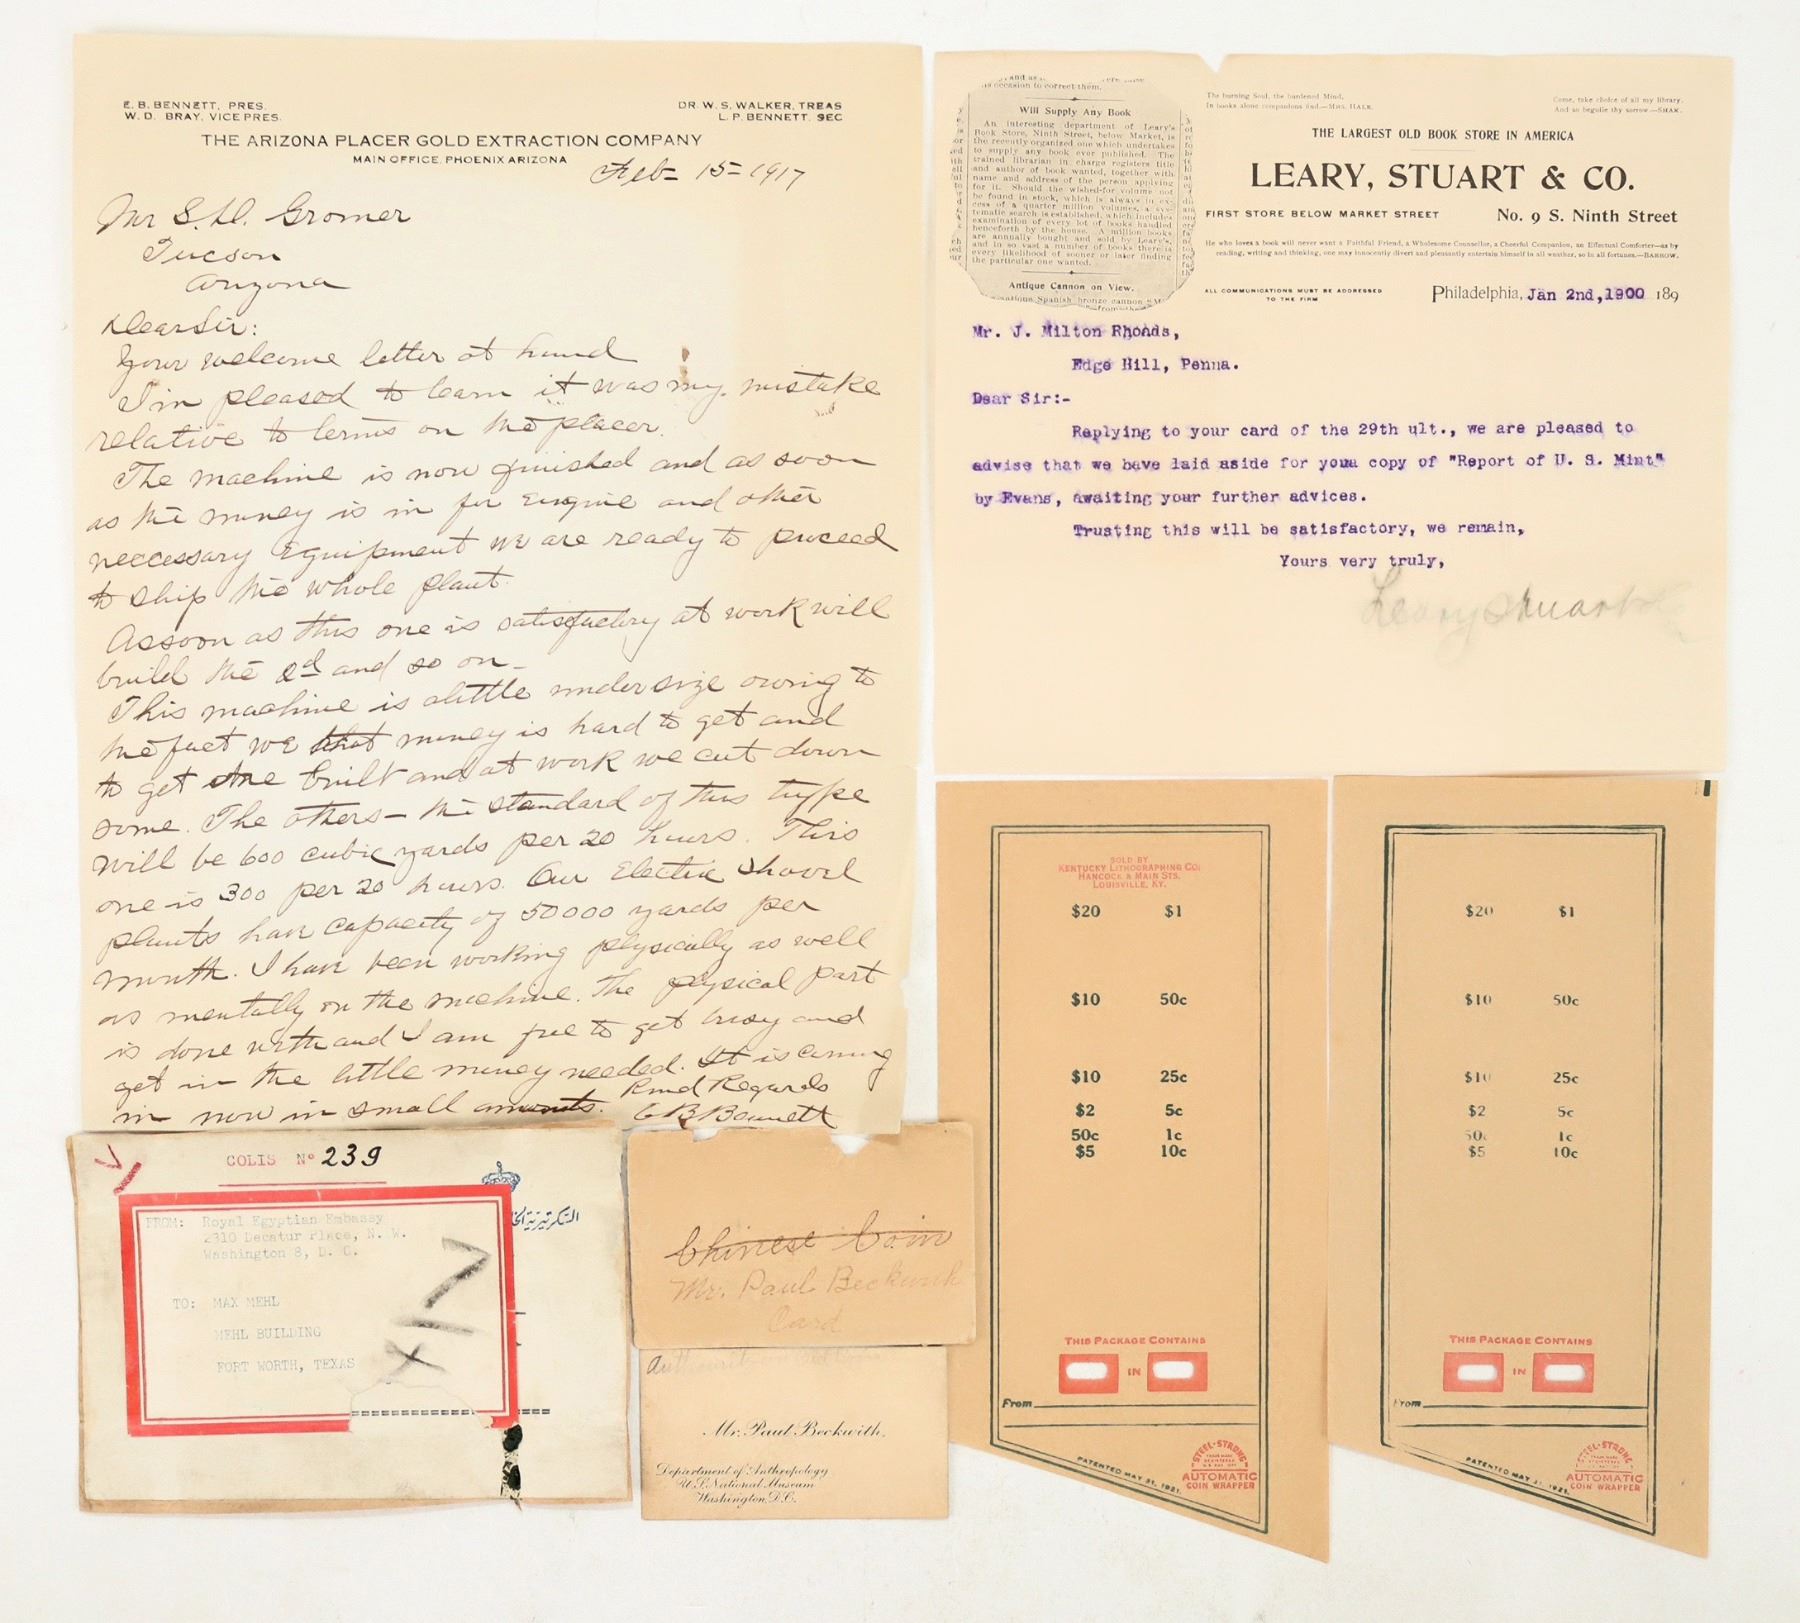 E. B. BENNETT, PRES.
W. D. BRAY, VICE PRES.
DR. W. S. WALKER, TREAS
L. P. BENNETT, SEC
THE ARIZONA PLACER GOLD EXTRACTION COMPANY
MAIN OFFICE, PHOENIX ARIZONA
Feb= 15=1917
Mr S. H. Gromer
Tucson
Arizona
Dear Sir:
Your welcome letter at hand
I'm pleased to learn it was my mistake
relative to terms on the placer.
The machine is now finished and as soon
as the money is in for engine and other
neccessary equipment we are ready to proceed
to ship the whole plant.
As soon as this one is satisfactory at work will
build the 2d and so on-
This machine is a little undersize owing to
the fact we that money is hard to get and
to get one built and at work we cut down
some. The others - the standard of this type
will be 600 cubic yards per 20 hours. This
one is 300 per 20 hours. Our Electric shovel
plants have capacity of 50000 yards per
month. I have been working physically as well
as mentally on the machine. The physical part
is done with and I am free to get busy and
get in the little money needed. It is coming
in now in small amounts. Kind Regards
E B Bennett
is occasion to correct them.
Will Supply Any Book
An interesting department of Leary's
Book Store, Ninth Street, below Market, is
the recently organized one which undertakes
to supply any book ever published. The
trained librarian in charge registers title
and author of book wanted, together with
name and address of the person applying
for it. Should the wished-for volume not
be found in stock, which is always in ex-
cess of a quarter million volumes, a sys-
tematic search is established, which includes
examination of every lot of books handled
henceforth by the house. A million books
are annually bought and sold by Leary's,
and in so vast a number of books there is
every likelihood of sooner or later finding
the particular one wanted.
Antique Cannon on View.
antique Spanish bronze cannon
The burning Soul, the burdened Mind,
In books alone companions find.—MRS. HALE.
Come, take choice of all my library,
And so beguile thy sorrow.—SHAK.
THE LARGEST OLD BOOK STORE IN AMERICA
LEARY, STUART & CO.
FIRST STORE BELOW MARKET STREET
No. 9 S. Ninth Street
He who loves a book will never want a Faithful Friend, a Wholesome Counsellor, a Cheerful Companion, an Effectual Comforter—as by
reading, writing and thinking, one may innocently divert and pleasantly entertain himself in all weather, so in all fortunes.—BARROW.
ALL COMMUNICATIONS MUST BE ADDRESSED
TO THE FIRM
Philadelphia, Jan 2nd,1900 189
Mr. J. Milton Rhoads,
Edge Hill, Penna.
Dear Sir:-
Replying to your card of the 29th ult., we are pleased to
advise that we have laid aside for you a copy of "Report of U. S. Mint"
by Evans, awaiting your further advices.
Trusting this will be satisfactory, we remain,
Yours very truly,
Leary Stuart & Co
COLIS Nº 239
FROM: Royal Egyptian Embassy
2310 Decatur Place, N. W.
Washington 8, D. C.
TO: MAX MEHL
MEHL BUILDING
FORT WORTH, TEXAS
Chinese Coin
Mr. Paul Beckwith
Card
Mr. Paul Beckwith,
Department of Anthropology
U.S. National Museum
Washington, D.C.
SOLD BY
KENTUCKY LITHOGRAPHING CO.
HANCOCK & MAIN STS.
LOUISVILLE, KY.
$20 $1
$10 50c
$10 25c
$2 5c
50c 1c
$5 10c
THIS PACKAGE CONTAINS
IN
From
PATENTED MAY 31, 1921.
STEEL-STRONG
TRADE MARK
REGISTERED
AUTOMATIC
COIN WRAPPER
$20 $1
$10 50c
$10 25c
$2 5c
50c 1c
$5 10c
THIS PACKAGE CONTAINS
IN
From
PATENTED MAY 31, 1921.
STEEL-STRONG
AUTOMATIC
COIN WRAPPER